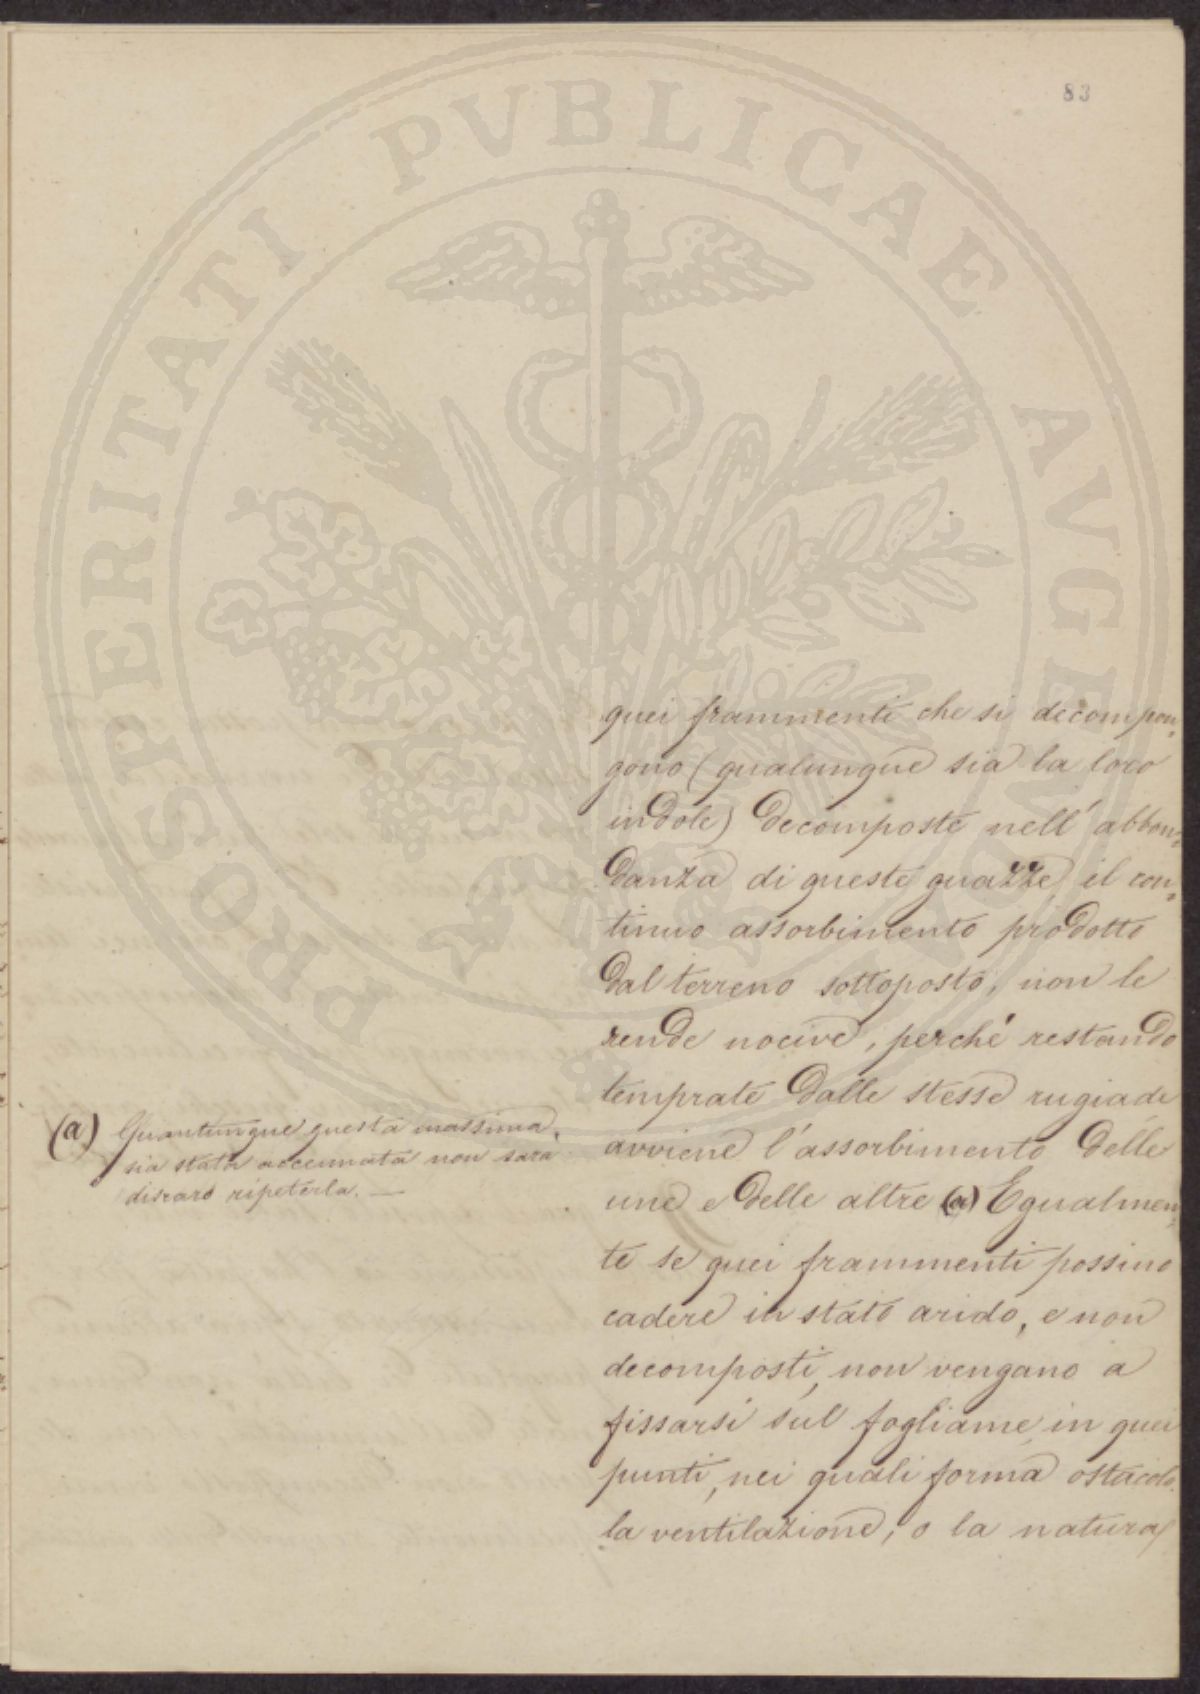 83
PROSPERITATI PVBLICAE AVGENDAE
quei frammenti che si decompon„
gono (qualunque sia la loro
indole) decomposte nell' abbon„
danza di queste guazze, il con„
tinuo assorbimento prodotto
dal terreno sottoposto, non le
rende nocive, perché restando
temprate dalle stesse rugiade
avviene l'assorbimento delle
une e delle altre (a) Egualmen„
te se quei frammenti possino
cadere in stato arido, e non
decomposti, non vengano a
fissarsi sul fogliame, in quei
punti, nei quali forma ostacolo
la ventilazione, o la natura
(a) Quantunque questa massima
sia stata accennata non sara
discaro ripeterla. —